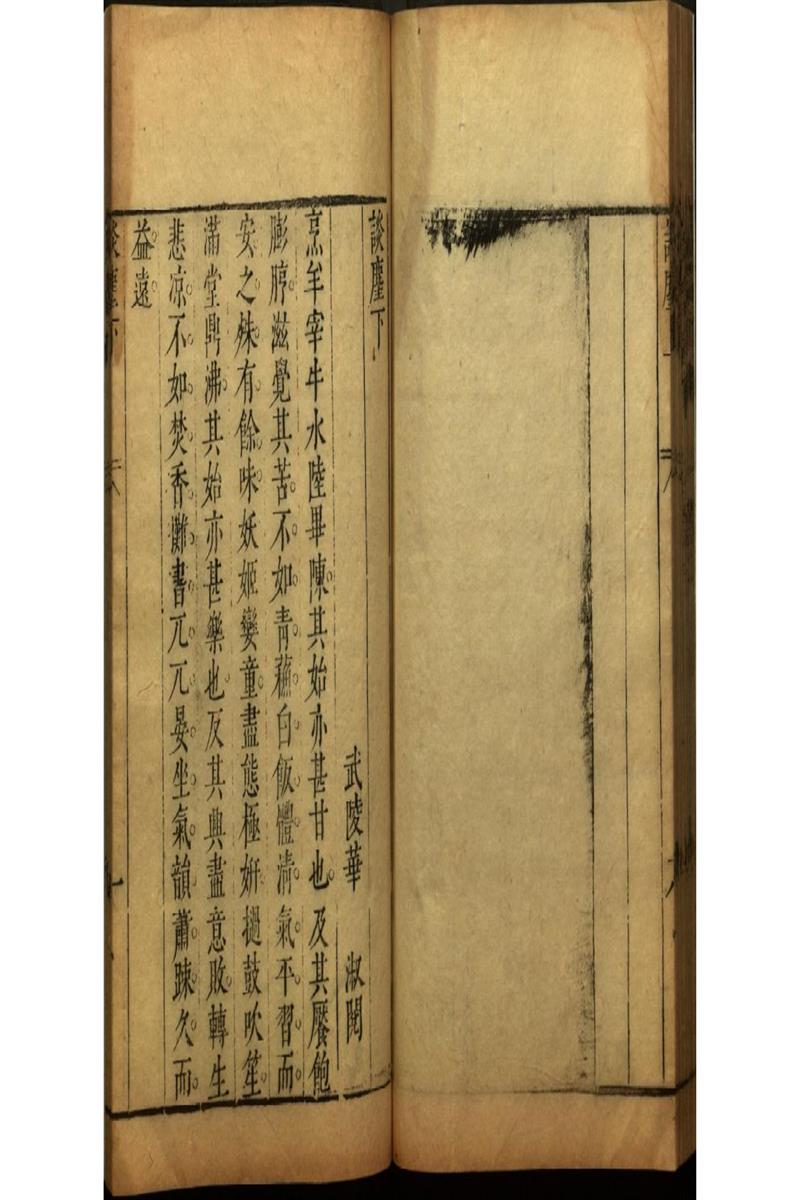 談麈下
武陵華 淑閱
烹羊宰牛水陸畢陳其始亦甚甘也及其饜飽
膨脝滋覺其苦不如青蔬白飯體清氣平習而
安之殊有餘味妖姬孌童盡態極妍撾鼓吹笙
滿堂鼎沸其始亦甚樂也及其興盡意敗轉生
悲凉不如焚香攤書兀兀晏坐氣韻蕭踈久而
益遠
談麈下 一